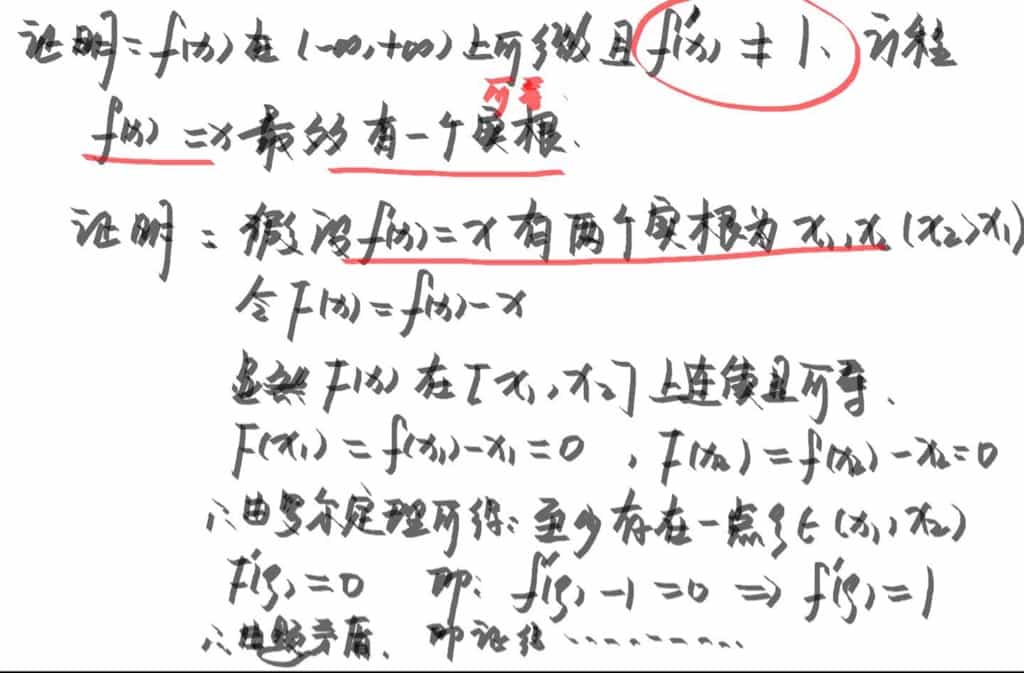 证明:f(x)在(-∞,+∞)上可微且f'(x)≠1、方程
可导
f(x)=x最多有一个实根.
证明:假设f(x)=x有两个实根为x₁,x₂(x₂>x₁)
令F(x)=f(x)-x
显然F(x)在[x₁,x₂]上连续且可导.
F(x₁)=f(x₁)-x₁=0,F(x₂)=f(x₂)-x₂=0
∴由罗尔定理可得:至少存在一点ξ∈(x₁,x₂)
F'(ξ)=0 即:f'(ξ)-1=0⇒f'(ξ)=1
∴与题矛盾. 即证得………